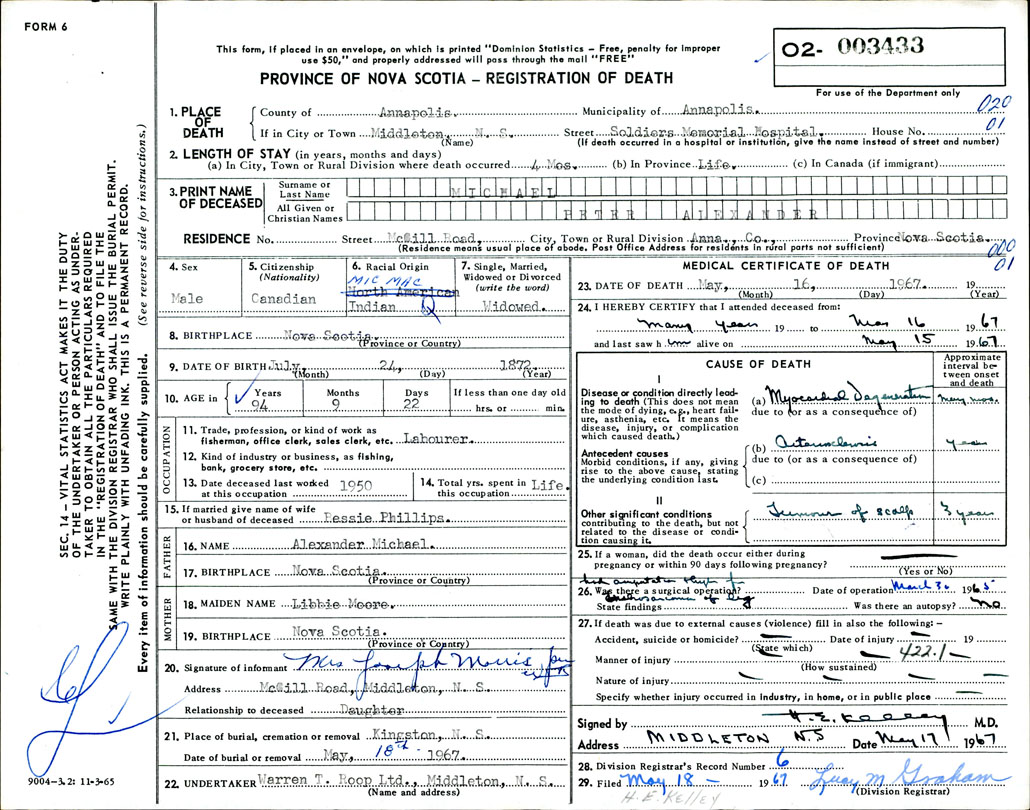 FORM 6
This form, if placed in an envelope, on which is printed "Dominion Statistics – Free, penalty for improper
use $50," and properly addressed will pass through the mail "FREE"
PROVINCE OF NOVA SCOTIA – REGISTRATION OF DEATH
02- 003433
For use of the Department only
020
01
1. PLACE OF DEATH
County of Annapolis. Municipality of Annapolis.
If in City or Town Middleton, N. S. Street Soldiers Memorial Hospital. House No.
(Name) (If death occurred in a hospital or institution, give the name instead of street and number)
2. LENGTH OF STAY (in years, months and days)
(a) In City, Town or Rural Division where death occurred 4 Mos. (b) In Province Life. (c) In Canada (if immigrant)
3. PRINT NAME OF DECEASED
Surname or Last Name MICHAEL
All Given or Christian Names PETER ALEXANDER
RESIDENCE No. Street McGill Road, City, Town or Rural Division Anna., Co., Province Nova Scotia.
(Residence means usual place of abode. Post Office Address for residents in rural parts not sufficient)
000
01
4. Sex
Male
5. Citizenship
(Nationality)
Canadian
6. Racial Origin
MIC MAC
North American
Indian
7. Single, Married,
Widowed or Divorced
(write the word)
Widowed.
8. BIRTHPLACE Nova Scotia.
(Province or Country)
9. DATE OF BIRTH July, 24, 1872.
(Month) (Day) (Year)
10. AGE in
Years
94
Months
9
Days
22
If less than one day old
hrs. or min.
OCCUPATION
11. Trade, profession, or kind of work as
fisherman, office clerk, sales clerk, etc. Labourer.
12. Kind of industry or business, as fishing,
bank, grocery store, etc.
13. Date deceased last worked
at this occupation 1950
14. Total yrs. spent in
this occupation Life.
15. If married give name of wife
or husband of deceased Bessie Phillips.
FATHER
16. NAME Alexander Michael.
17. BIRTHPLACE Nova Scotia.
(Province or Country)
MOTHER
18. MAIDEN NAME Libbie Moore.
19. BIRTHPLACE Nova Scotia.
(Province or Country)
20. Signature of informant Mrs Joseph Morris
Address McGill Road, Middleton, N. S.
Relationship to deceased Daughter
21. Place of burial, cremation or removal Kingston, N. S.
Date of burial or removal May, 18th 1967.
22. UNDERTAKER Warren T. Roop Ltd., Middleton, N. S.
(Name and address)
MEDICAL CERTIFICATE OF DEATH
23. DATE OF DEATH May, 16, 1967. 19
(Month) (Day) (Year)
24. I HEREBY CERTIFY that I attended deceased from:
many years 19 to May 16 1967
and last saw him alive on May 15 1967.
CAUSE OF DEATH
Approximate
interval be-
tween onset
and death
I
Disease or condition directly lead-
ing to death (This does not mean
the mode of dying, e.g., heart fail-
ure, asthenia, etc. It means the
disease, injury, or complication
which caused death.)
(a) Myocardial Degeneration many mos.
due to (or as a consequence of)
Antecedent causes
Morbid conditions, if any, giving
rise to the above cause, stating
the underlying condition last.
(b) years
due to (or as a consequence of)
(c)
II
Other significant conditions
contributing to the death, but not
related to the disease or condi-
tion causing it.
Tumour of scalp 3 years
25. If a woman, did the death occur either during
pregnancy or within 90 days following pregnancy?
(Yes or No)
had amputation thigh for
26. Was there a surgical operation? Date of operation March 30 1965
State findings of leg Was there an autopsy? no
27. If death was due to external causes (violence) fill in also the following: –
Accident, suicide or homicide? Date of injury 19
(State which)
422.1
Manner of injury
(How sustained)
Nature of injury
Specify whether injury occurred in industry, in home, or in public place
Signed by H. E. Kelley M.D.
Address MIDDLETON NS Date May 17 1967
28. Division Registrar's Record Number 6
29. Filed May 18 – 1967 Lucy M. Graham
(Division Registrar)
H.E. Kelley
SEC. 14 – VITAL STATISTICS ACT MAKES IT THE DUTY
OF THE UNDERTAKER OR PERSON ACTING AS UNDER-
TAKER TO OBTAIN ALL THE PARTICULARS REQUIRED
IN THE "REGISTRATION OF DEATH" AND TO FILE THE
SAME WITH THE DIVISION REGISTRAR WHO SHALL ISSUE THE BURIAL PERMIT.
WRITE PLAINLY WITH UNFADING INK. THIS IS A PERMANENT RECORD.
Every item of information should be carefully supplied. (See reverse side for instructions.)
9004-3.2: 11-3-65